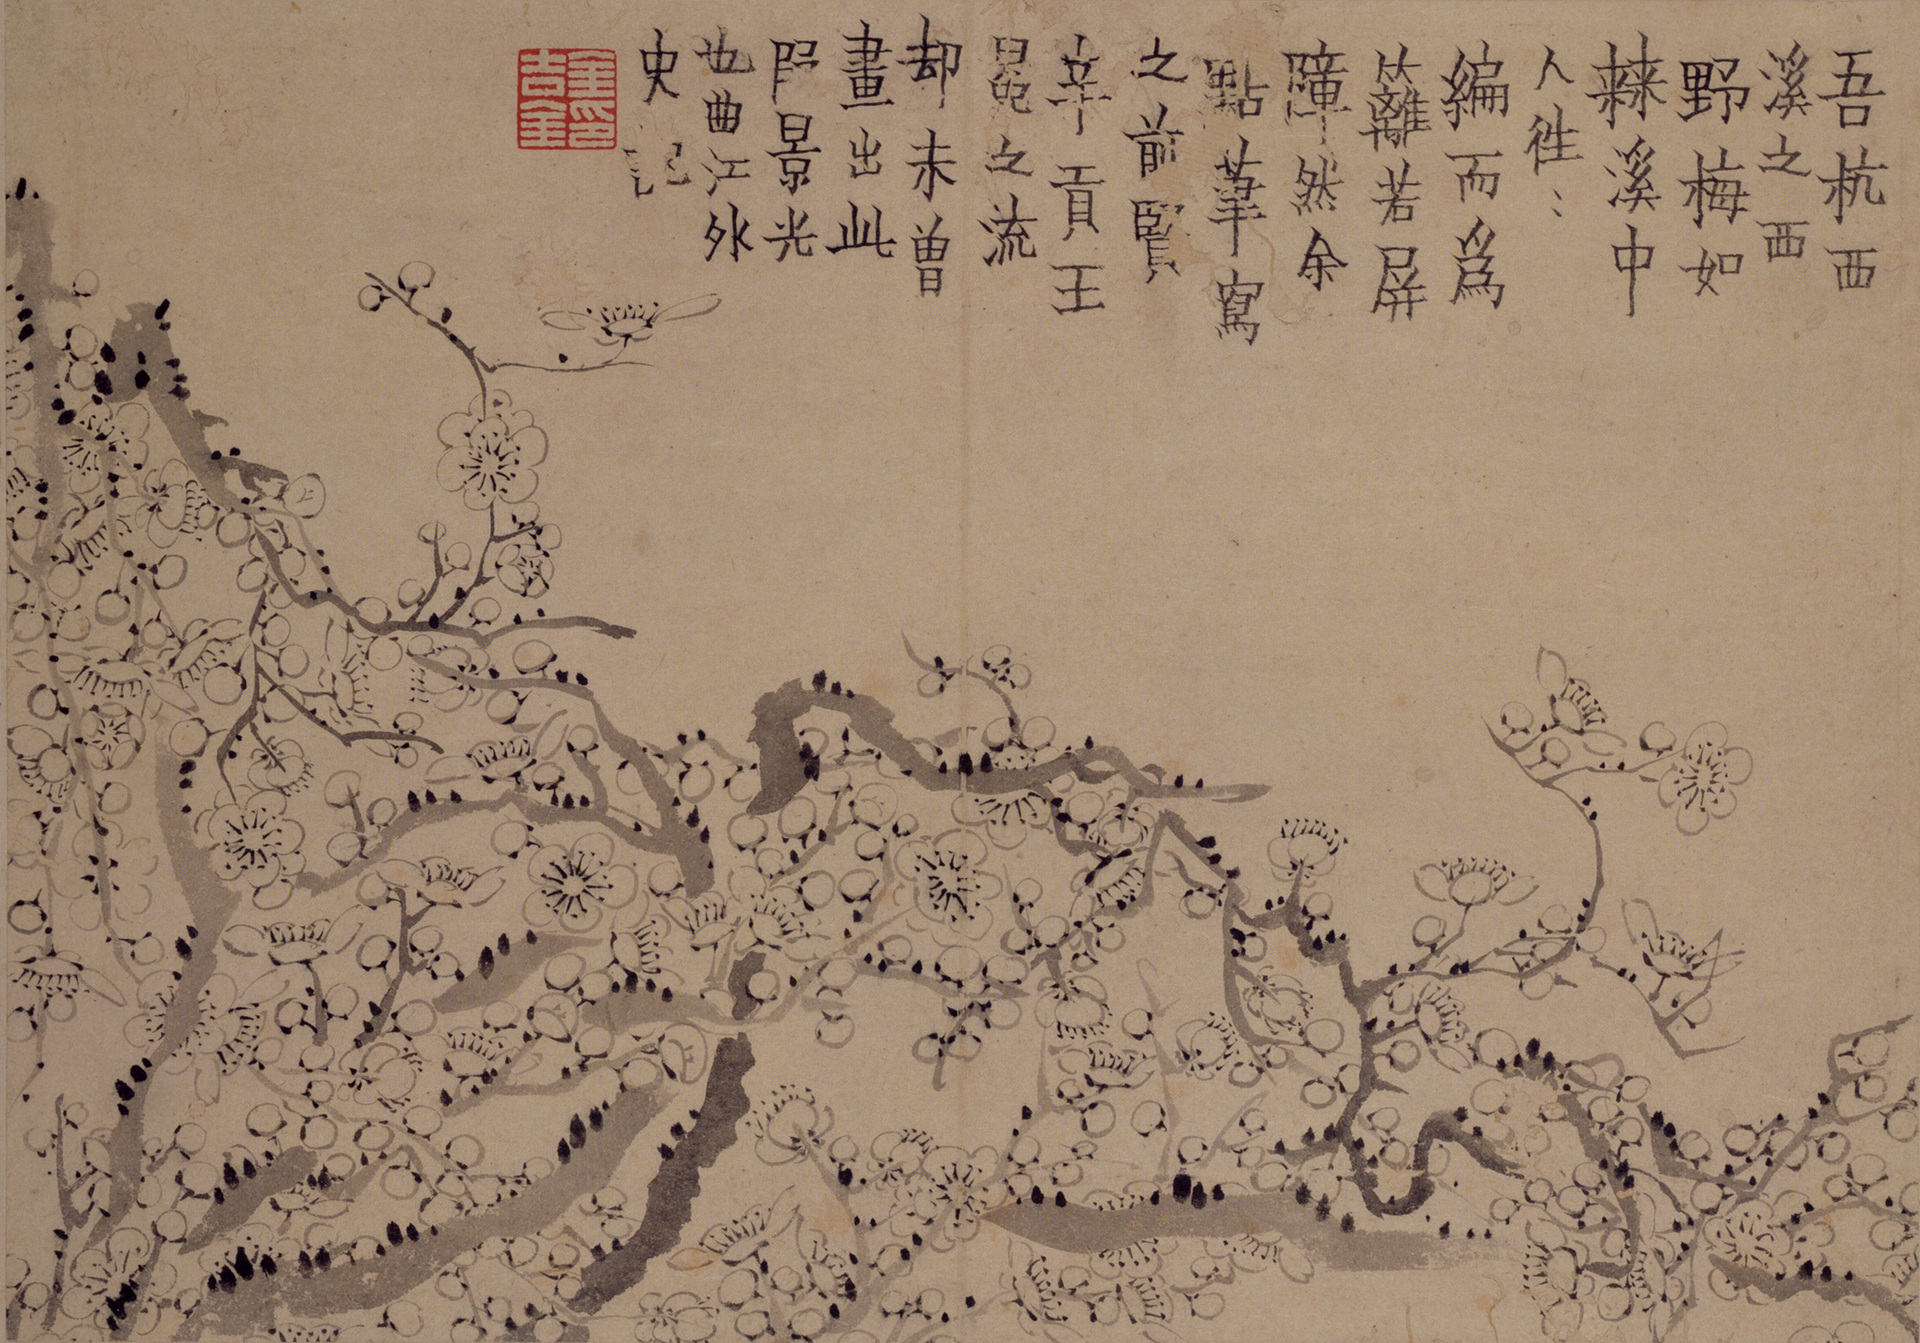 吾杭西
溪之西
野梅如
棘溪中
人往〻
編而爲
籬若屏
障然余
點筆寫
之前賢
辛貢王
冕之流
却未曾
畫出此
段景光
也曲江外
史記
金吉金印